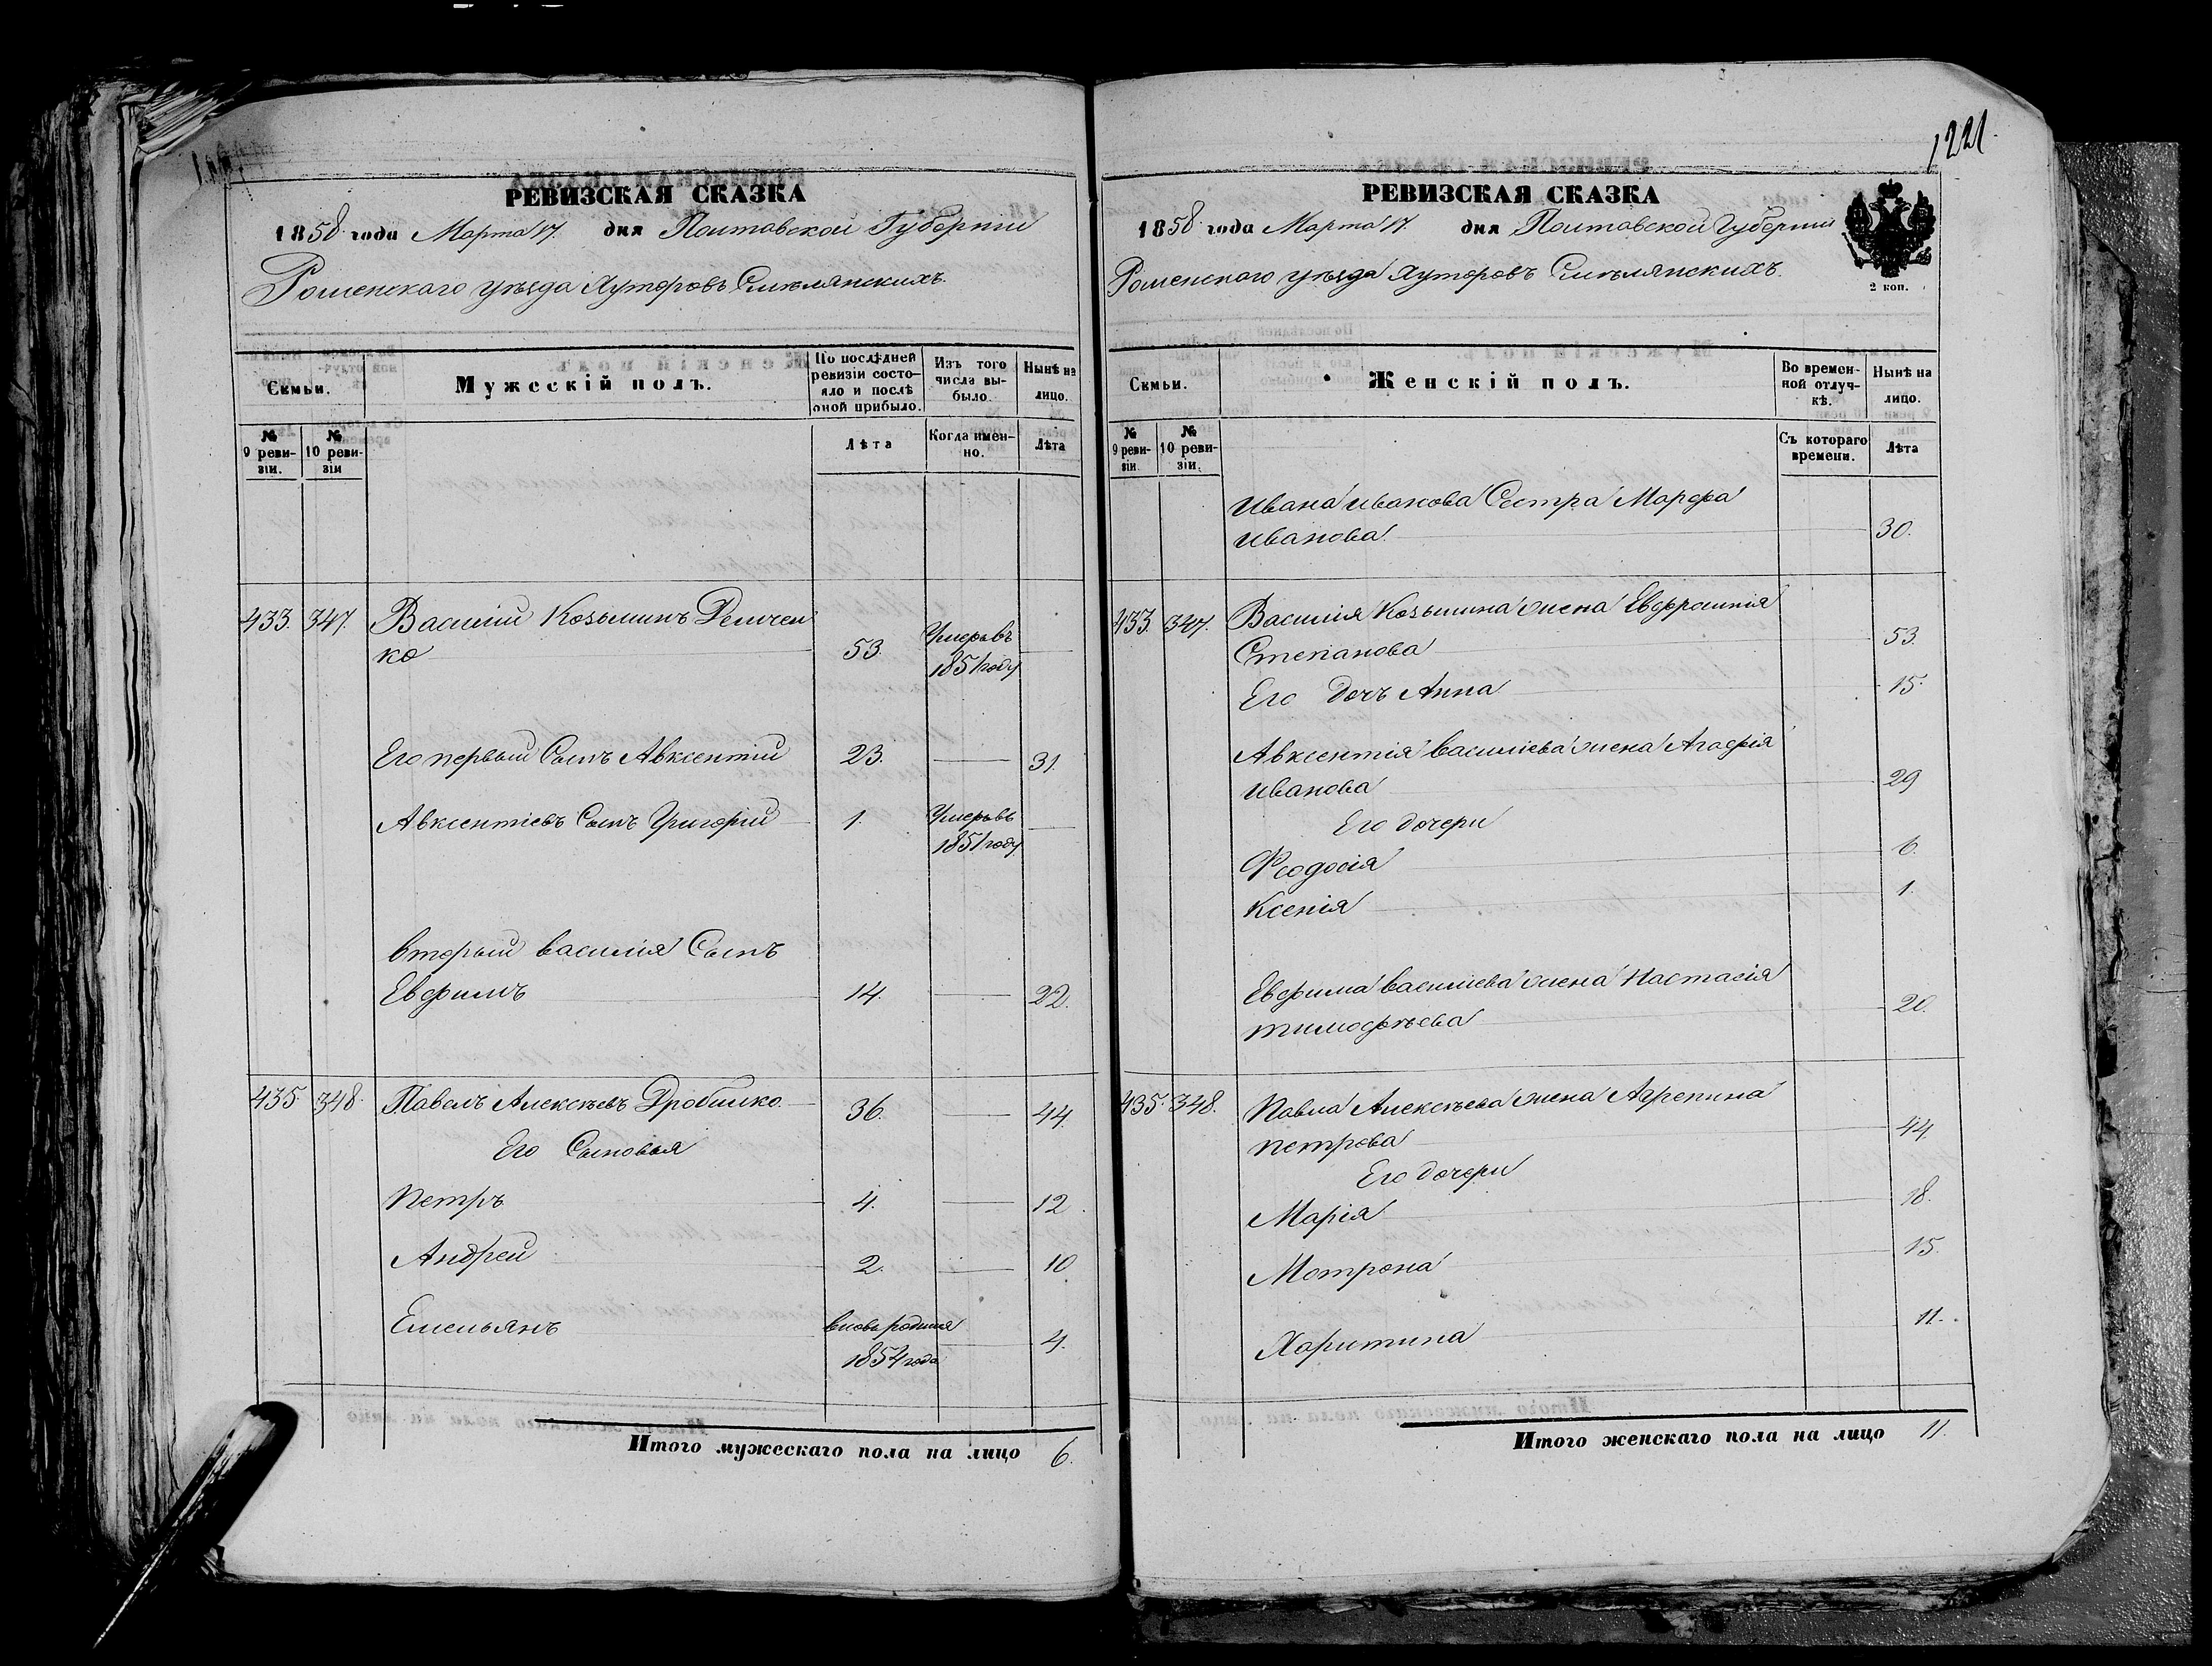 1221.
РЕВИЗСКАЯ СКАЗКА
1858 года Марта 17. дня Полтавской Губерніи
Роменскаго уѣзда Хуторовъ Смѣлянскихъ.
Семьи.
Мужескій полъ.
По послѣдней ревизіи состояло и послѣ оной прибыло.
Изъ того числа выбыло.
Нынѣ на лицо.
№ 9 ревизіи.
№ 10 ревизіи
Лѣта
Когда именно.
Лѣта
433. 347. Василій Козьминъ Демчен
ко 53. Умеръ въ 1851 году
Его первый Сынъ Авксентій 23. 31.
Авксентіевъ Сынъ Григорій 1. Умеръ въ 1851 году
вторый василія Сынъ
Евфимъ 14. 22.
435 348. Павелъ Алексѣевъ Дробилко. 36. 44.
Его Сыновья
Петръ 4. 12.
Андрей 2. 10
Емельянъ вновь родился 1854 года 4.
Итого мужескаго пола на лицо 6.
РЕВИЗСКАЯ СКАЗКА
1858 года Марта 17. дня Полтавской Губерніи
Роменскаго уѣзда Хуторовъ Смѣлянскихъ.
2 коп.
Семьи.
Женскій полъ.
Во временной отлучкѣ.
Нынѣ на лицо.
№ 9 ревизіи.
№ 10 ревизіи.
Съ котораго времени.
Лѣта
Ивана Иванова Сестра Марфа
Иванова. 30.
433. 347. Василія Козьмина жена Евфросинія
Степанова 53.
Его дочь Анна 15.
Авксентія василіева жена Агафія
Иванова 29
Его дочери
Феодосія 6.
Ксенія 1.
Евфима василіева жена Настасія
тимофѣева 20.
435. 348. Павла Алексѣева жена Агрепина
петрова 44.
Его дочери
Марія 18.
Мотрона 15.
Харитина 11.
Итого женскаго пола на лицо 11.